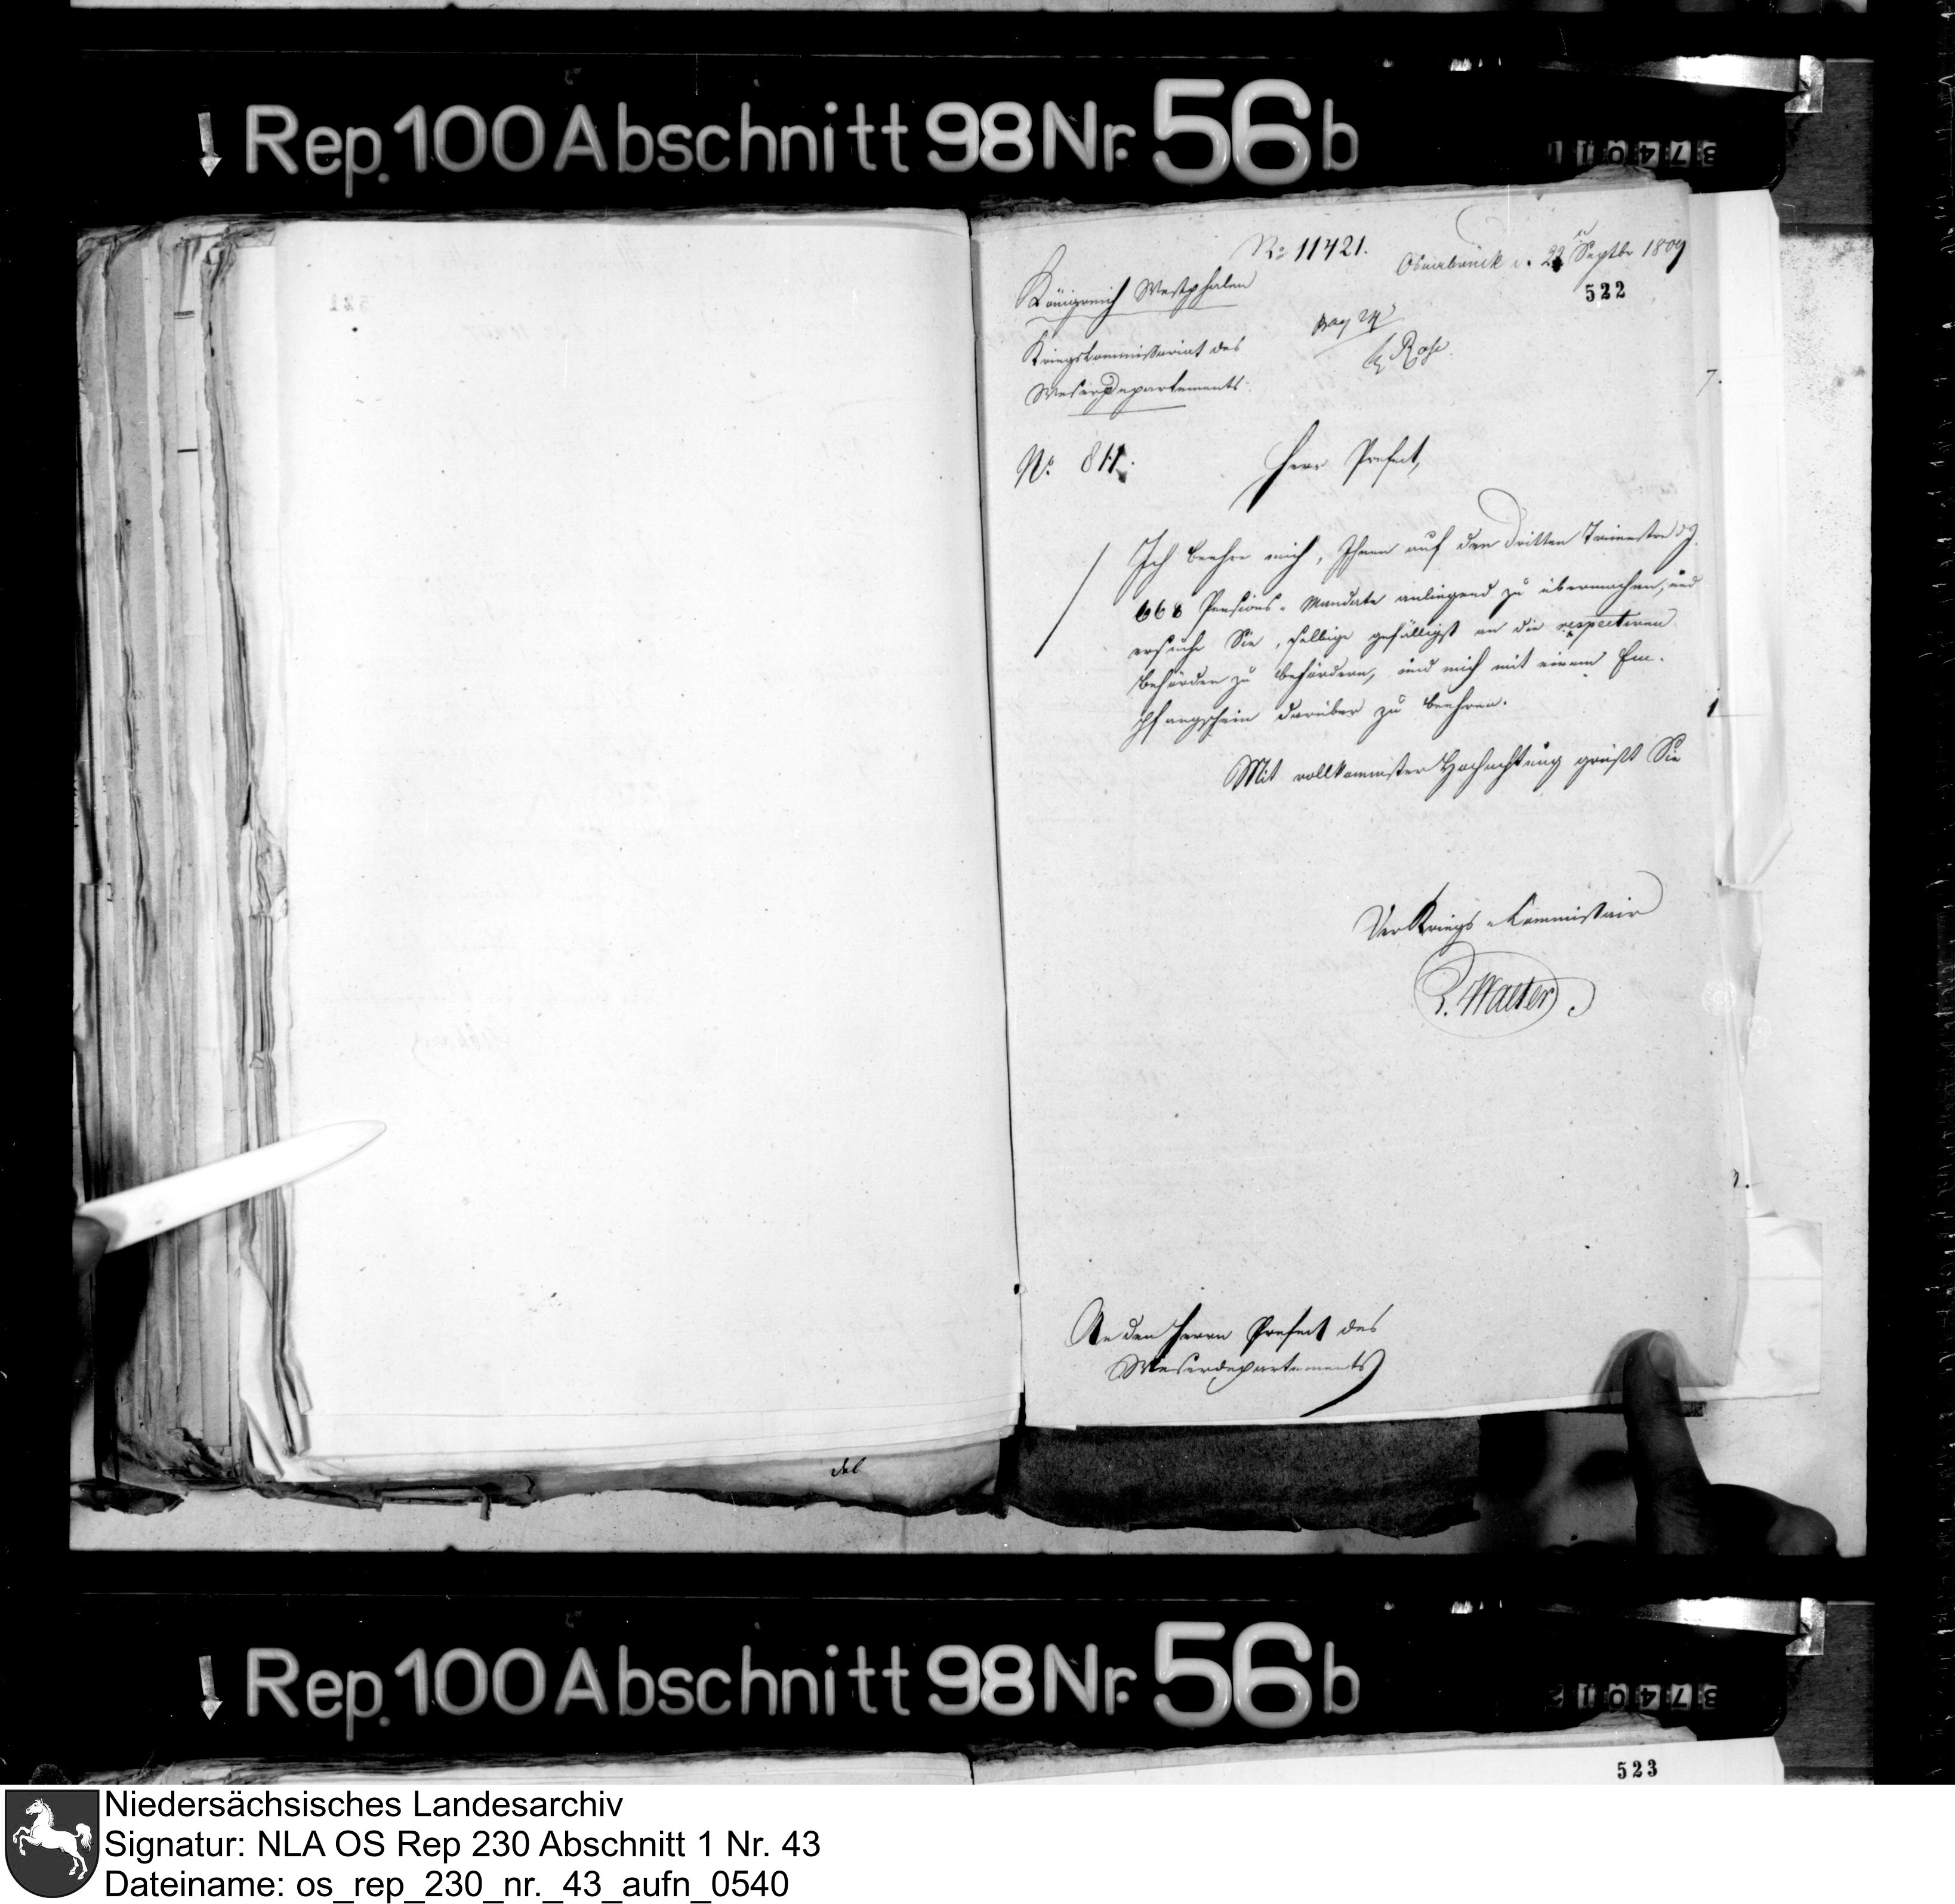 Rep. 100 Abschnitt 98 Nr. 56 b
No 11421.
Osnabrück d. 22 Septbr 1809
522
Königreich Westphalen
Kriegskommissariat des
Weserdepartements.
No. 811.
Herr Prefect,
Ich beehre mich, Ihnen auf den dritten Trimestre d. J.
668 Pensions-Mandate anliegend zu übermachen, und
ersuche Sie, selbige gefälligst an die respectiven
Behörden zu befördern, und mich mit einem Em-
pfangschein darüber zu beehren.
Mit vollkommster Hochachtung grüßt Sie
Der Kriegs-Kommissair
Walter
An den Herrn Prefect des
Weserdepartements
Rep. 100 Abschnitt 98 Nr. 56 b
523
Niedersächsisches Landesarchiv
Signatur: NLA OS Rep 230 Abschnitt 1 Nr. 43
Dateiname: os_rep_230_nr._43_aufn_0540